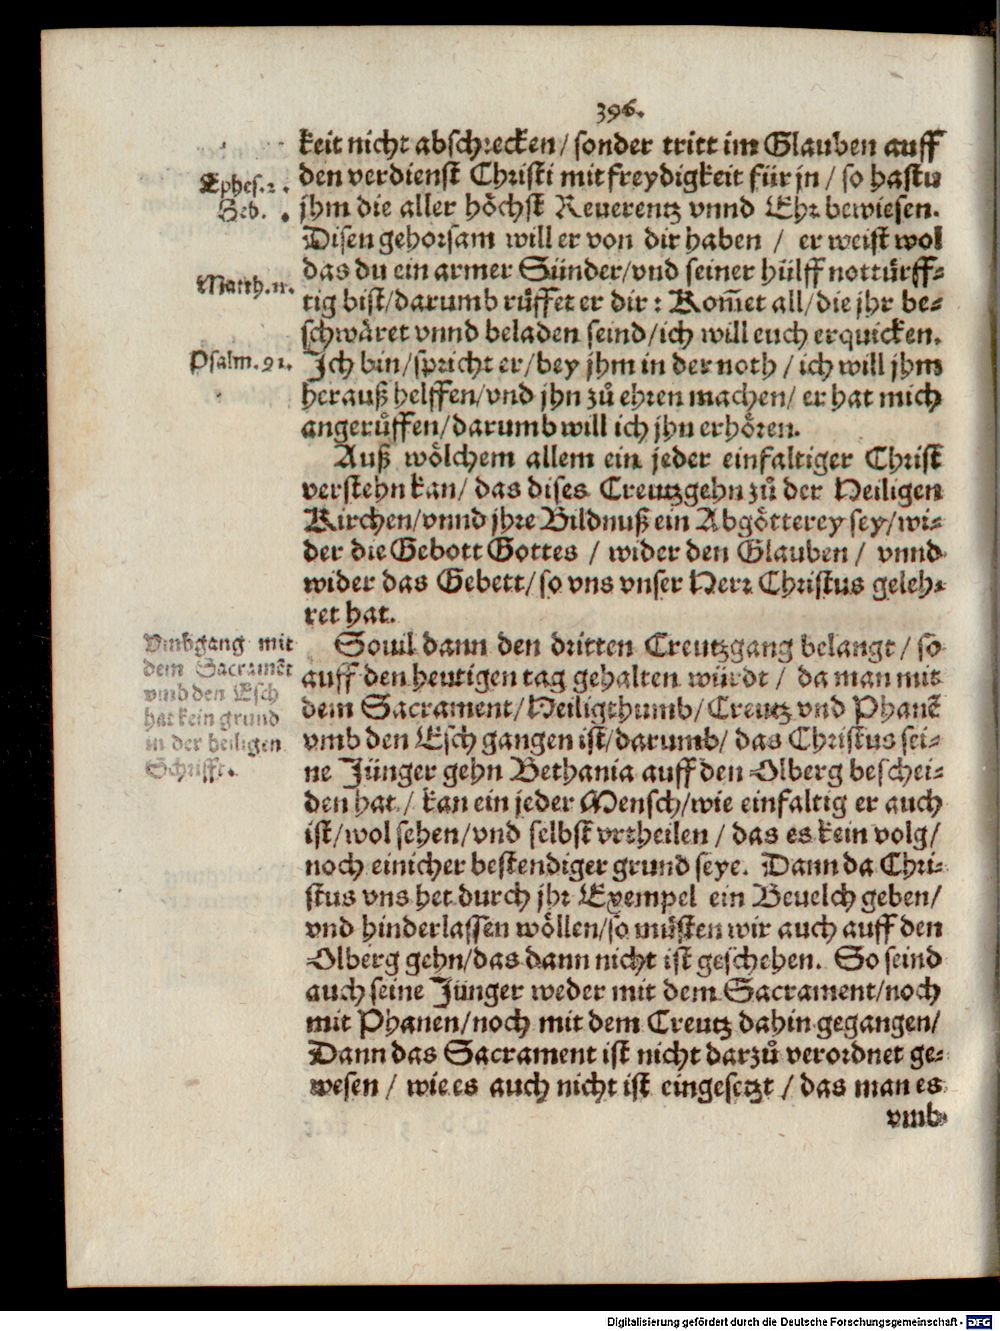 396.
keit nicht abschrecken/sonder tritt im Glauben auff
den verdienst Christi mit freydigkeit für jn / so hastu
jhm die aller höchst Reuerentz vnnd Ehr bewiesen.
Disen gehorsam will er von dir haben / er weist wol
das du ein armer Sünder/vnd seiner hülff nottürff-
tig bist/darumb růffet er dir : Kom̃et all/die jhr be-
schwäret vnnd beladen seind/ich will euch erquicken.
Jch bin/spricht er/bey jhm in der noth / ich will jhm
herauß helffen/vnd jhn zů ehren machen/ er hat mich
angerůffen/darumb will ich jhn erhören.
Auß wölchem allem ein jeder einfaltiger Christ
verstehn kan/ das dises Creutzgehn zů der Heiligen
Kirchen/vnnd jhre Bildnuß ein Abgötterey sey/wi-
der die Gebott Gottes / wider den Glauben / vnnd
wider das Gebett/so vns vnser Herr Christus geleh-
ret hat.
Souil dann den dritten Creutzgang belangt / so
auff den heutigen tag gehalten würdt / da man mit
dem Sacrament/Heiligthumb/Creutz vnd Phanẽ
vmb den Esch gangen ist/darumb/ das Christus sei-
ne Jünger gehn Bethania auff den Olberg beschei-
den hat / kan ein jeder Mensch/wie einfaltig er auch
ist/wol sehen/vnd selbst vrtheilen / das es kein volg/
noch einicher bestendiger grund seye. Dann da Chri-
stus vns het durch jhr Exempel ein Beuelch geben/
vnd hinderlassen wöllen/so müsten wir auch auff den
Olberg gehn/das dann nicht ist geschehen. So seind
auch seine Jünger weder mit dem Sacrament/noch
mit Phanen/noch mit dem Creutz dahin gegangen/
Dann das Sacrament ist nicht darzů verordnet ge-
wesen / wie es auch nicht ist eingesetzt / das man es
vmb
Ephes.2.
Heb. .
Matth.11.
Psalm.91.
Vmbgang mit
dem Sacramẽt
vmb den Esch
hat kein grund
in der heiligen
Schrifft.
Digitalisierung gefördert durch die Deutsche Forschungsgemeinschaft - DFG